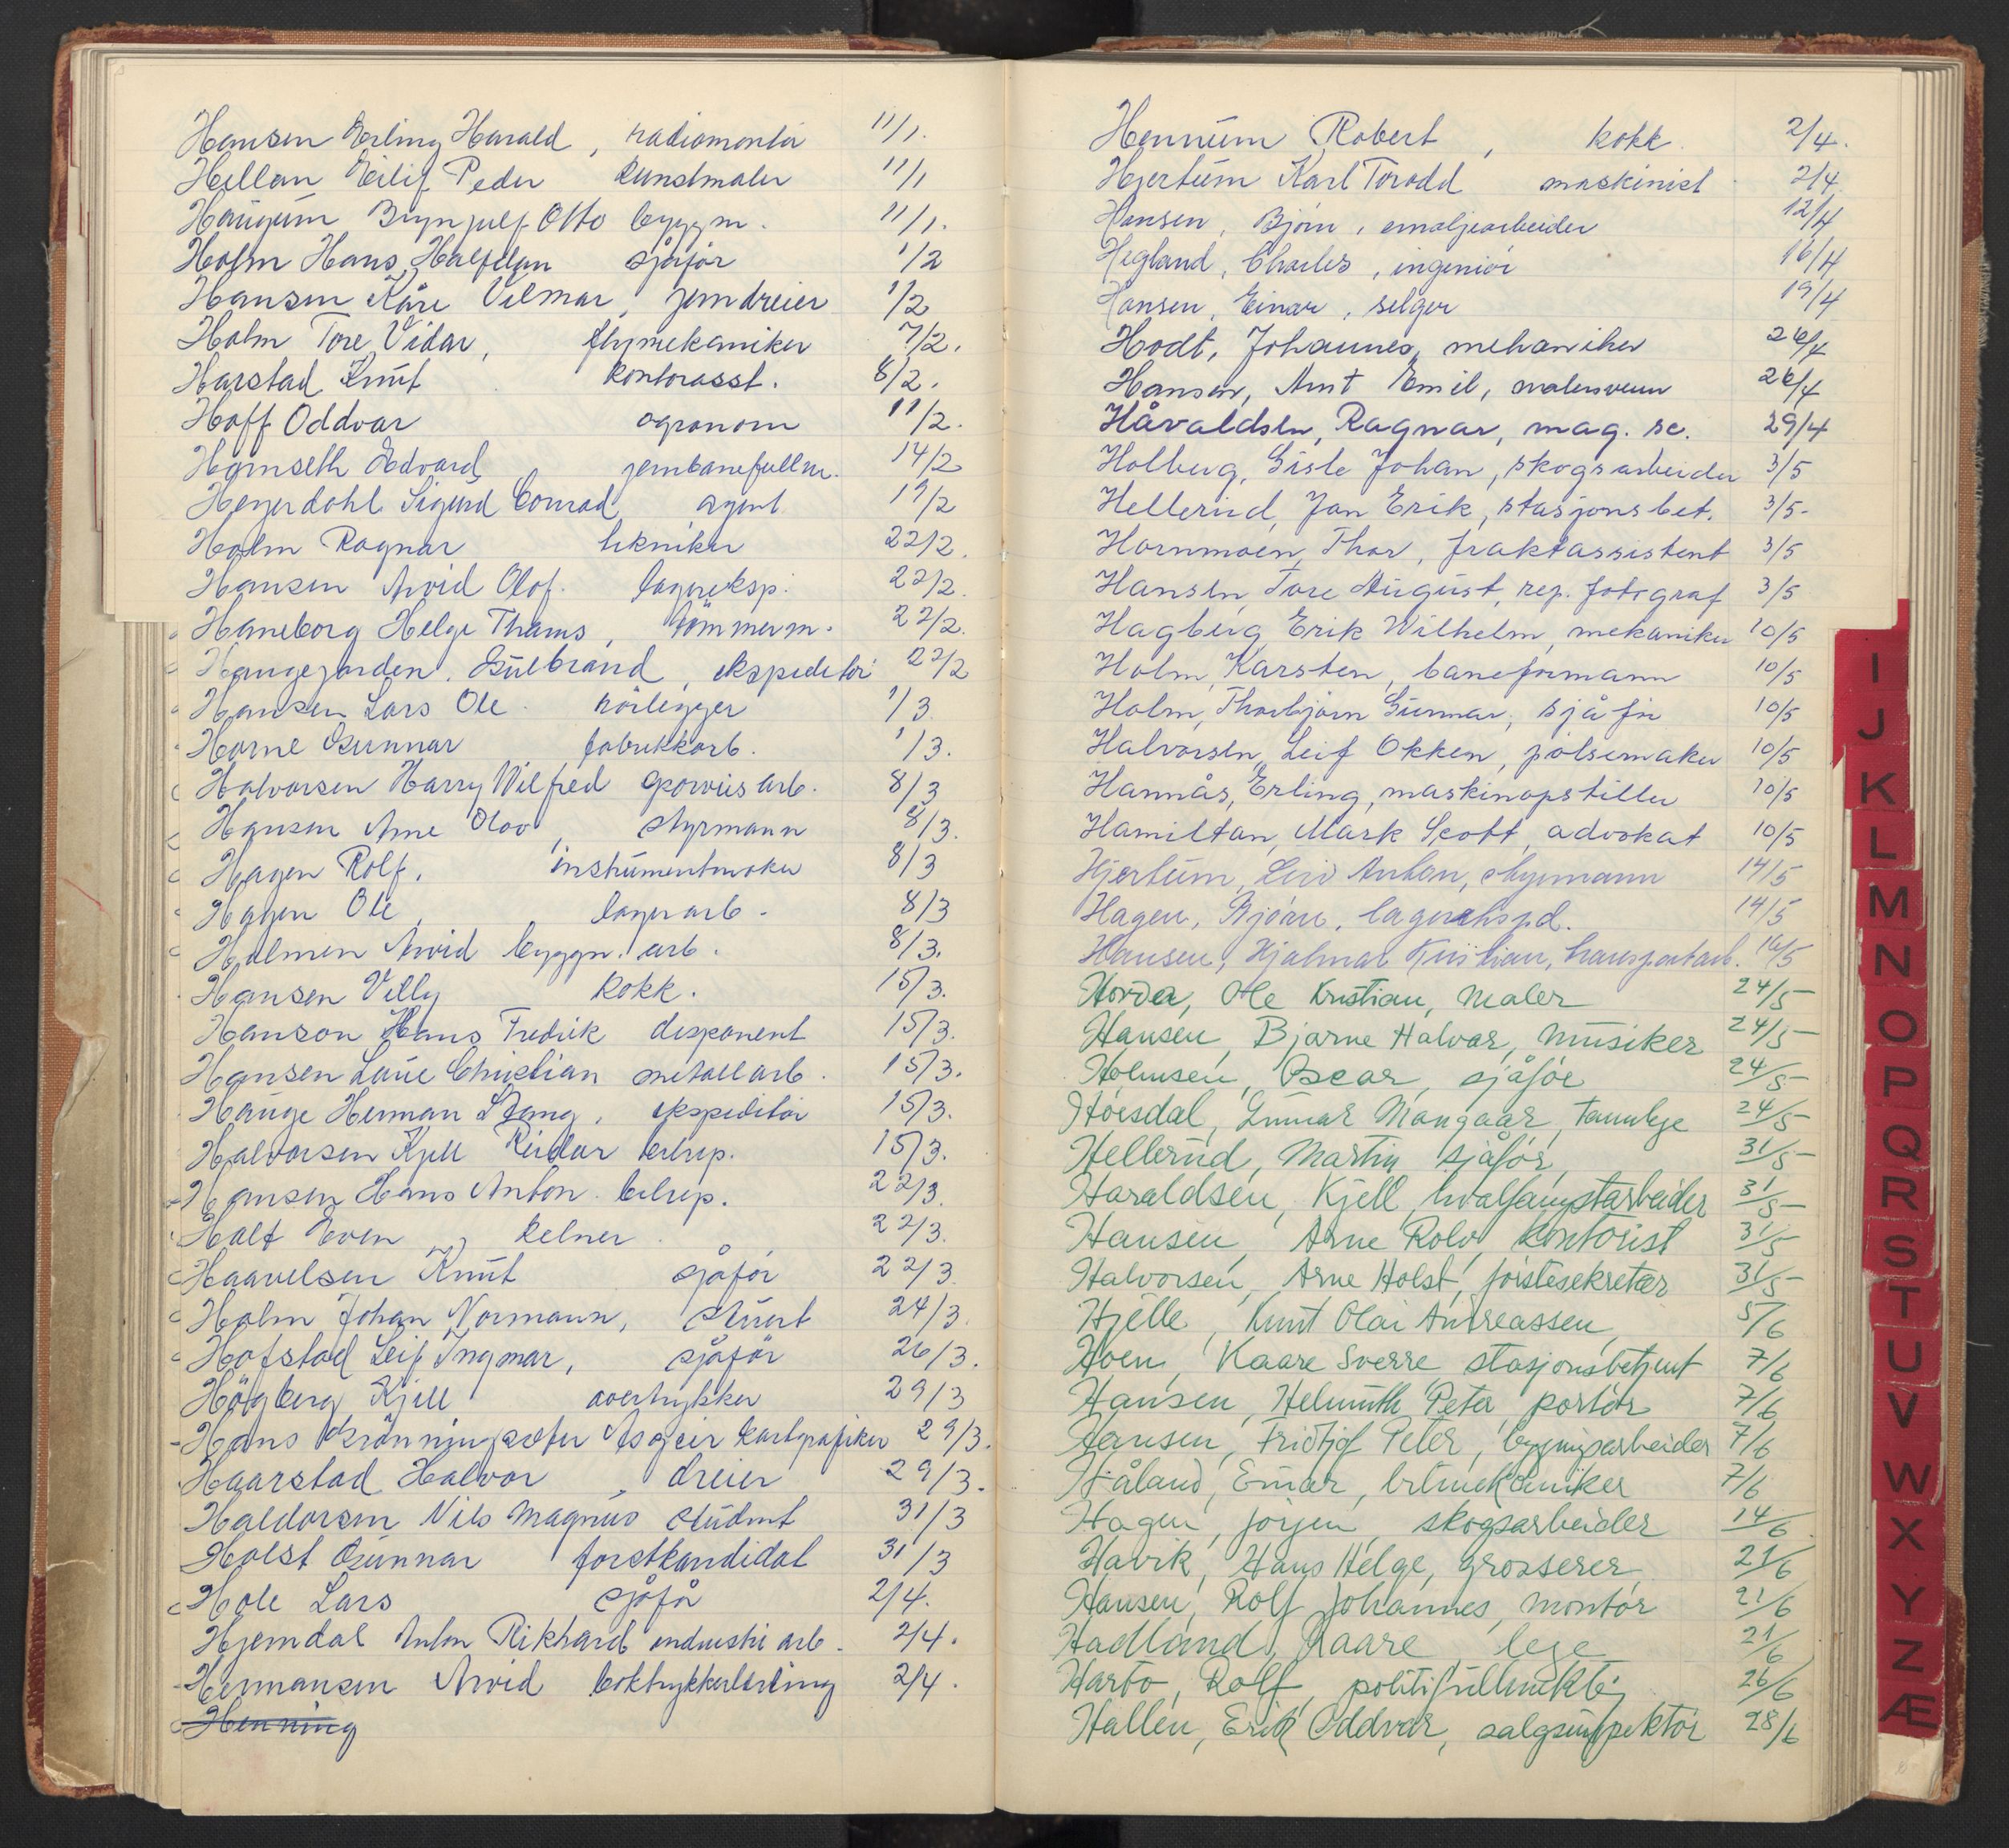 Hansen Erling Harald, radiomontør 11/1.
Hellan Eilif Peder kunstmaler 11/1
Haugum Brynjulf Otto byggm. 11/1.
Holm Hans Halfdan sjåfør 1/2
Hansen Kåre Vilmar, jerndreier 1/2
Holm Tore Vidar, flymekaniker 7/2.
Harstad Knut kontorasst. 8/2.
Hoff Oddvar agronom 11/2.
Hamseth Edvard jernbanefullm. 14/2
Heyerdahl Sigurd Conrad agent 19/2
Holm Ragnar tekniker 22/2.
Hansen Arvid Olof. lagereksp. 22/2.
Haneborg Helge Thams, tömmerm. 22/2.
Haugejorden, Gulbrand, ekspeditör 22/2
Hansen Lars Ole rörlegger 1/3
Horne Gunnar fabrikkarb. 1/3.
Halvorsen Harry Wilfred arb. 8/3
Hansen Arne Olav, styrmann 8/3.
Hagen Rolf, instrumentmaker 8/3
Hagen Ole, lagerarb. 8/3
Holmen Arvid bygn. arb. 8/3.
Hansen Villy kokk. 15/3.
Hanson Hans Fredrik disponent 15/3.
Hansen Laue Christian metallarb. 15/3.
Hauge Herman Stang, ekspeditör 15/3.
Halvorsen Kjell Reidar bilrep. 15/3.
Hansen Hans Anton bilrep. 22/3.
Holt Even, kelner. 22/3.
Haavelsen Knut sjåfør 22/3.
Holm Johan Normann, stuert 24/3.
Hofstad Leif Ingmar, sjåför 26/3.
Högberg Kjell overtrykker 29/3
Hans Asgeir kartgrafiker 29/3.
Haarstad Halvor, dreier 29/3.
Haldorsen Nils Magnus student 31/3
Holst Gunnar forstkandidat 31/3
Hole Lars sjåför 2/4.
Hjemdal Anton Rikhard industri arb. 2/4.
Hermansen Arvid boktrykkerlærling 2/4.
Henning
Hennum Robert, kokk. 2/4.
Hjertum Karl Torodd maskinist 2/4.
Hansen, Bjørn, emaljearbeider 12/4
Hegland, Charles, ingeniør 16/4
Hansen, Einar, selger 19/4
Hodt, Johannes, mekaniker 26/4
Hansen, Arnt Emil, malersvenn 26/4
Håvaldsen, Ragnar, mag. sc. 29/4
Holberg, Gisle Johan, skogsarbeider 3/5
Hellerud, Jan Erik, stasjonsbet. 3/5.
Hornmoen, Thor, fraktassistent 3/5
Hansen, Tore August, rep. fotograf 3/5
Hagberg, Erik Wilhelm, mekaniker 10/5
Holm, Karsten, baneformann 10/5
Holm, Thorbjørn Gunnar, sjåfør 10/5
Halvorsen, Leif Okken, pølsemaker 10/5
Hannås, Erling, maskinopstiller 10/5
Hamilton, Mark Scott, advokat 10/5
Hjertum, Leiv Anton, styrmann 14/5
Hagen, Bjørn, lagerekspd. 14/5
Hansen, Hjalmar Kristian, transportarb. 16/5
Horda, Ole Kristian, Maler 24/5
Hansen, Bjarne Halvar, Musiker 24/5
Holmsen, Oscar, sjåfør 24/5
Høisdal, Gunnar Mangaar, tannlege 24/5
Hellerud, Martin, sjåfør, 31/5
Haraldsen, Kjell, hvalfangstarbeider 31/5
Hansen, Arne Rolv, kontorist 31/5
Halvorsen, Arne Holst, førstesekretær 31/5
Hjelle, Knut Olai Andreassen, 5/6
Hoen, Kaare Sverre, stasjonsbetjent 7/6
Hansen, Helmuth Peter, portør 7/6
Hansen, Fridtjof Peter, bygningsarbeider 7/6
Håland, Einar, bilmekaniker 7/6
Hagen, Jörgen, skogsarbeider 14/6
Havik, Hans Helge, grosserer 21/6
Hansen, Rolf Johannes, montör 21/6
Hadland, Kaare lege 21/6
Harbo, Rolf, politifullmektig 26/6
Hallén, Erik Oddvar, salgsinspektör 28/6
I
J
K
L
M
N
O
P
Q
R
S
T
U
V
W
X
Y
Z
Æ